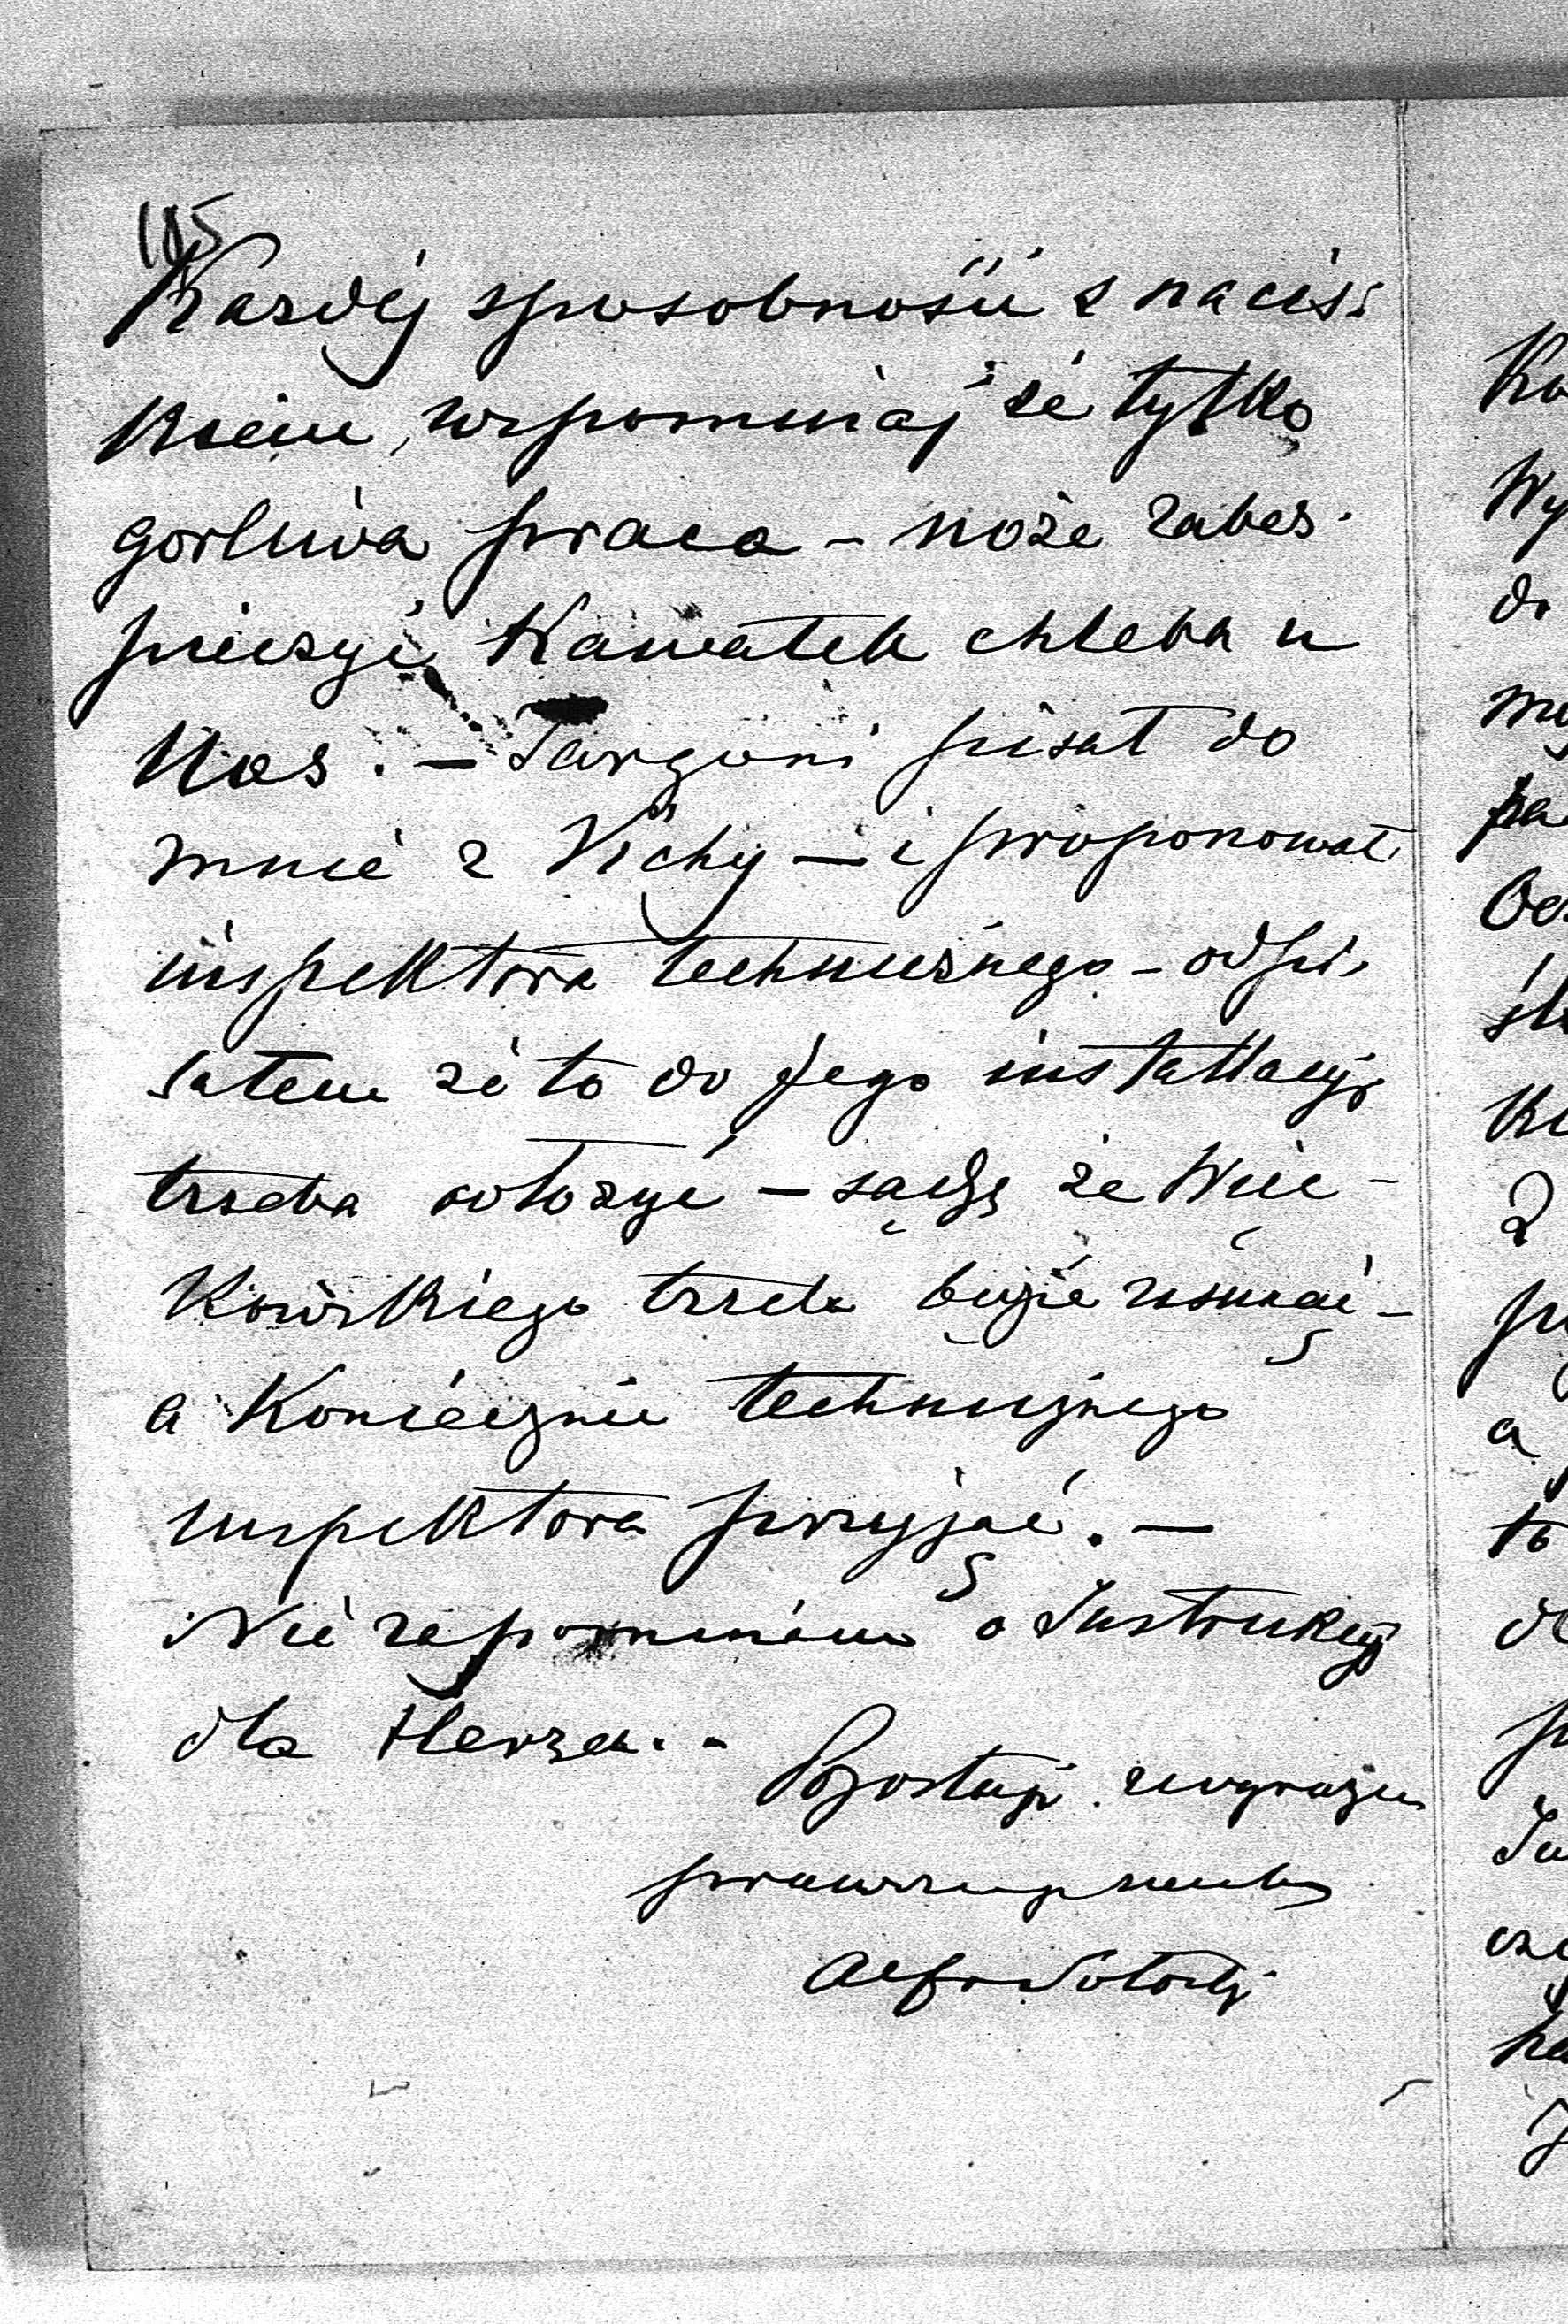 105
Każdej sposobności z nacis-
kiem, wspominaj że tylko
gorliwa praca – może zabez-
pieczyć Kawałek chleba u
Nas. – Targoni pisał do
mnie z Vichy – i proponował
inspektora technicznego – odpi-
sałem że to do jego installacyi
trzeba odłożyć – sądzę że Wię-
kowskiego trzeba będzie usunąć –
a Koniecznie technicznego
inspektora przyjąć. –
Nie zapominam o Instrukcyi
dla Herza. –
Pozostaję z wyrazem
prawdziwym
Alfr Potocki